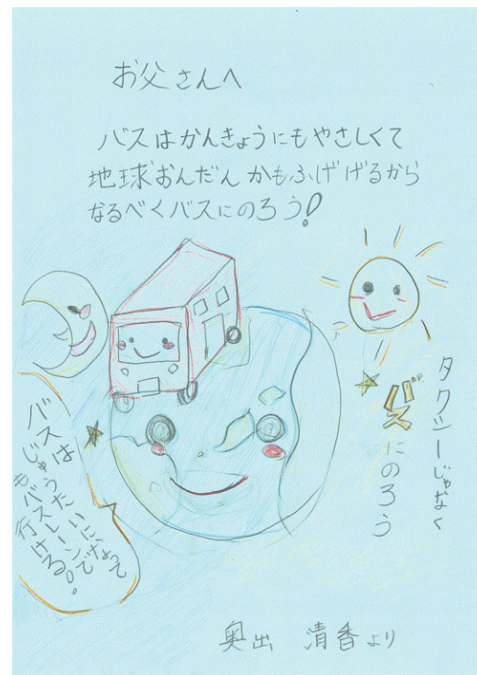 お父さんへ
バスはかんきょうにもやさしくて
地球おんだんかもふげげるから
なるべくバスにのろう!
タクシーじゃなく
バスにのろう
バスは
じゅうたいになって
もバスレーンで
行ける。
奥出 清香より